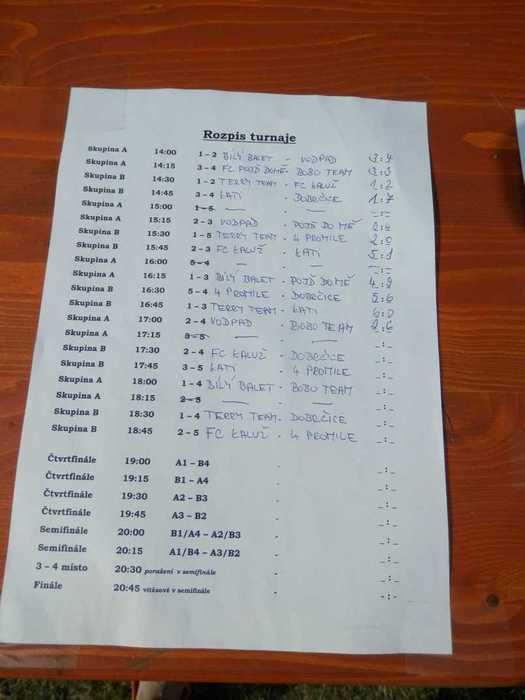 Rozpis turnaje
Skupina A 14:00 1 – 2 BÍLÝ BALET - VODPAD
Skupina A 14:15 3 – 4 FC POJĎ DO MĚ - BOBO TEAM 3:3
Skupina B 14:30 1 – 2 TERRY TEAM - FC ŁALUŽ 1:2
Skupina B 14:45 3 – 4 ŁATI - DOBRČICE 1:7
Skupina A 15:00 1 – 5 — - — -:-
Skupina A 15:15 2 – 3 VODPAD - POJĎ DO MĚ
Skupina B 15:30 1 – 5 TERRY TEAM - 4 PROMILE
Skupina B 15:45 2 – 3 FC ŁALUŽ - ŁATI 5:1
Skupina A 16:00 5 – 4 — - — -:-
Skupina A 16:15 1 – 3 BÍLÝ BALET - POJĎ DO MĚ
Skupina B 16:30 5 – 4 4 PROMILE - DOBRČICE 5:6
Skupina B 16:45 1 – 3 TERRY TEAM - ŁATI
Skupina A 17:00 2 – 4 VODPAD - BOBO TEAM 2:6
Skupina A 17:15 3 – 5 — - — -:-
Skupina B 17:30 2 – 4 FC ŁALUŽ - DOBRČICE -:-
Skupina B 17:45 3 – 5 ŁATI - 4 PROMILE -:-
Skupina A 18:00 1 – 4 BÍLÝ BALET - BOBO TEAM -:-
Skupina A 18:15 2 – 5 — - — -:-
Skupina B 18:30 1 – 4 TERRY TEAM - DOBRČICE -:-
Skupina B 18:45 2 – 5 FC ŁALUŽ - 4 PROMILE -:-
Čtvrtfinále 19:00 A1 – B4 - -:-
Čtvrtfinále 19:15 B1 – A4 - -:-
Čtvrtfinále 19:30 A2 – B3 - -:-
Čtvrtfinále 19:45 A3 – B2 - -:-
Semifinále 20:00 B1/A4 – A2/B3 - -:-
Semifinále 20:15 A1/B4 – A3/B2 - -:-
3 – 4 místo 20:30 poražení v semifinále - -:-
Finále 20:45 vítězové v semifinále - -:-